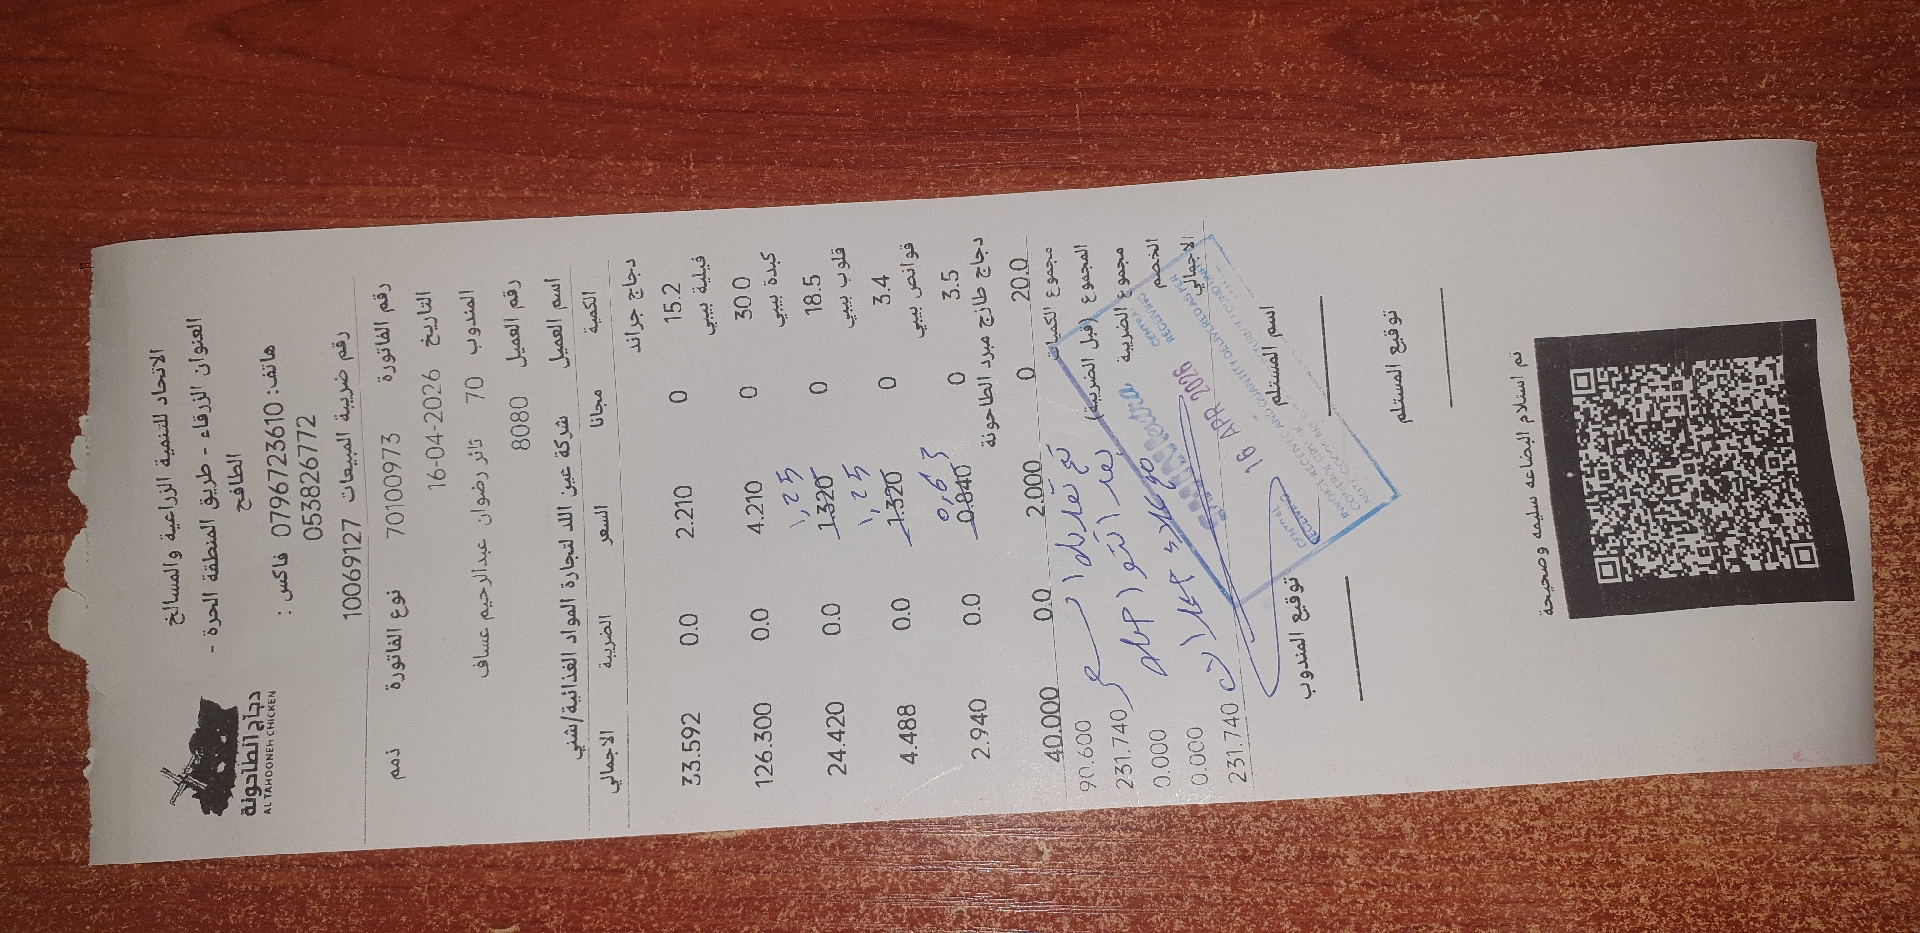 دجاج الطاحونة
AL TAHOONEH CHICKEN
الاتحاد للتنمية الزراعية والمسالخ
العنوان الزرقاء - طريق المنطقة الحرة -
الطافح
هاتف: 0796723610 فاكس :
053826772
رقم ضريبة المبيعات 10069127
رقم الفاتورة 70100973 نوع الفاتورة ذمم
التاريخ 16-04-2026
المندوب 70 ثائر رضوان عبدالرحيم عساف
رقم العميل 8080
اسم العميل شركة عين اللد لتجارة المواد الغذائية/شني
الكمية مجانا السعر الضريبة الاجمالي
دجاج جراند
15.2 0 2.210 0.0 33.592
فيلية بيبي
30.0 0 4.210 0.0 126.300
كبدة بيبي
18.5 0 1.320 0.0 24.420
1,25
قلوب بيبي
3.4 0 1.320 0.0 4.488
1,25
قوانص بيبي
3.5 0 0.840 0.0 2.940
0,63
دجاج طازج مبرد الطاحونة
20.0 0 2.000 0.0 40.000
مجموع الكميات 90.600
المجموع (قبل الضريبة) 231.740
مجموع الضريبة 0.000
الخصم 0.000
الاجمالي 231.740
CENTRAL
RECEIVING
16 APR 2026
INVOICE RECEIVED AND QUANTITY DELIVERED AS PER
CENTRAL
RECEIVING
اسم المستلم
توقيع المندوب
توقيع المستلم
تم استلام البضاعه سليمه وصحيحة